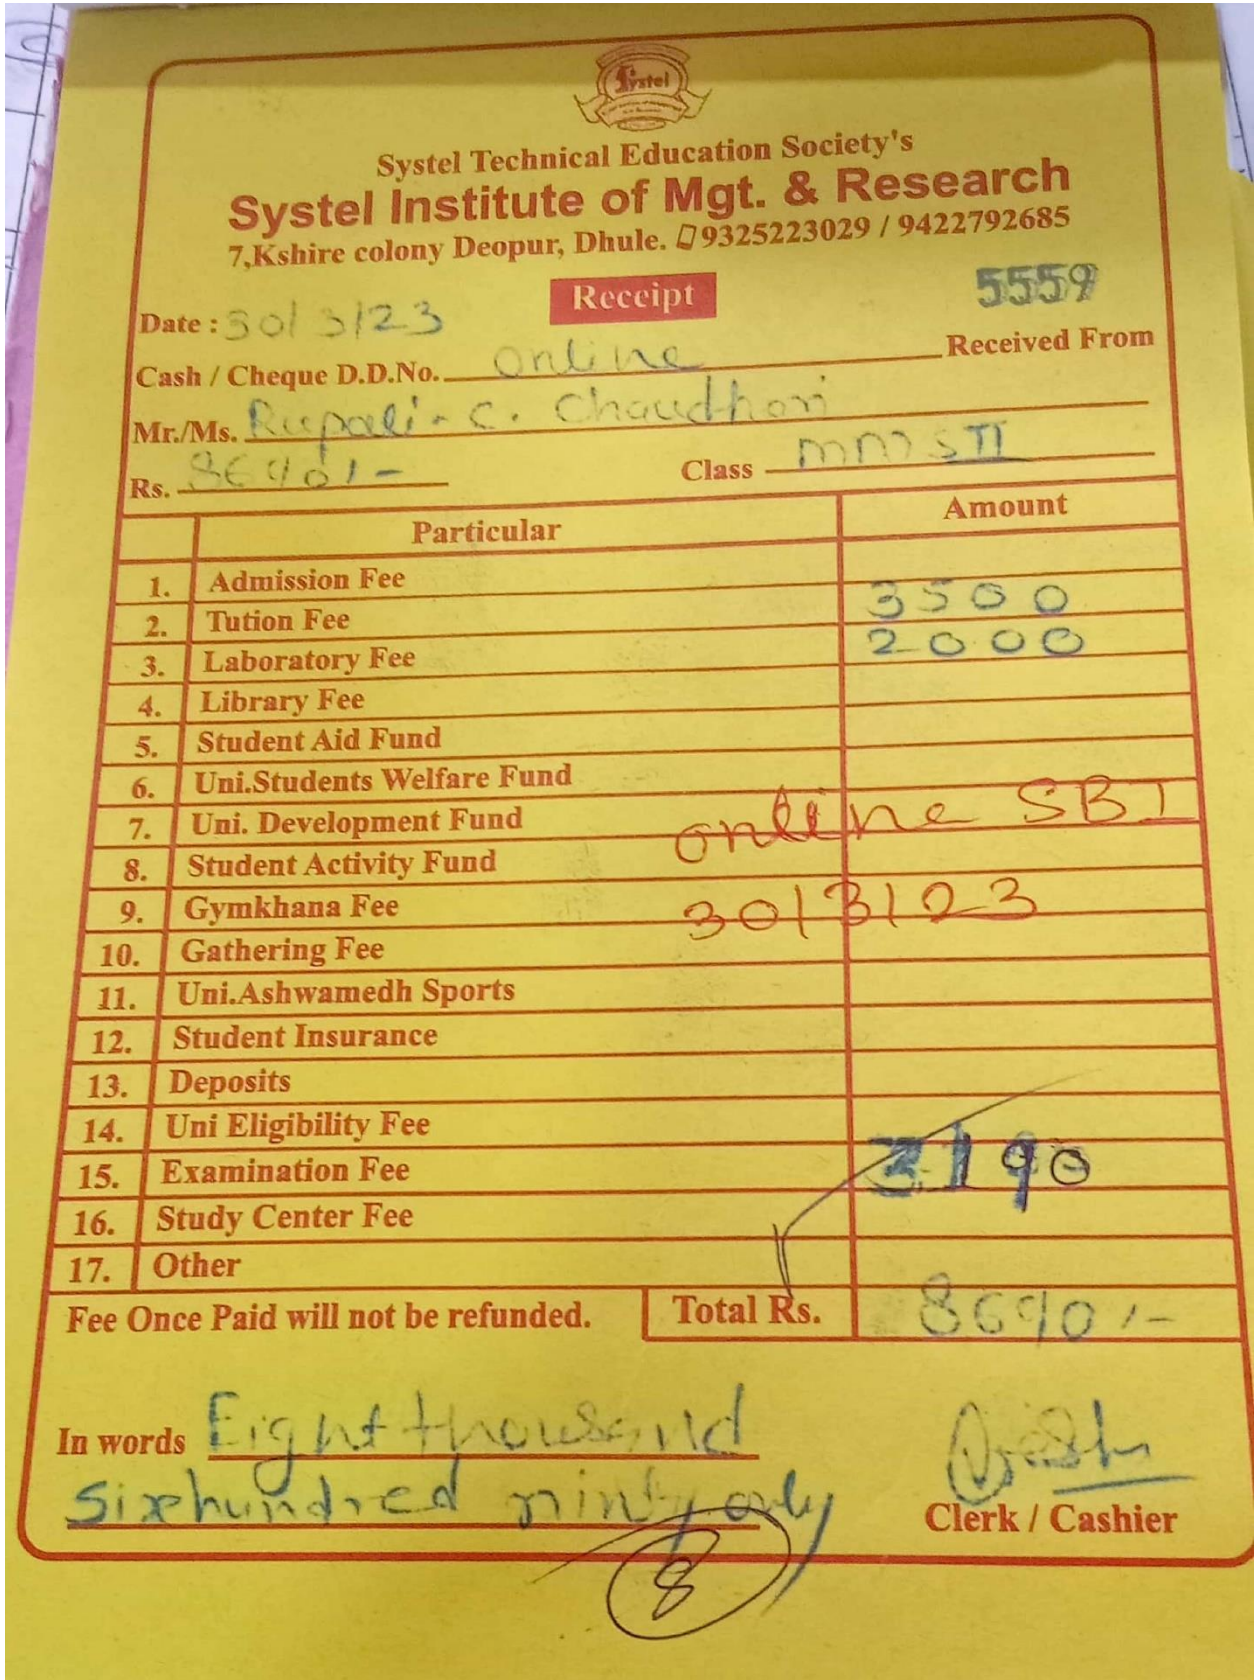 Systel
Systel Technical Education Society's
Systel Institute of Mgt. & Research
7,Kshire colony Deopur, Dhule. 9325223029 / 9422792685
Receipt
5559
Date : 30/3/23
Cash / Cheque D.D.No. online Received From
Mr./Ms. Rupali - C. Chaudhari
Rs. 8690/- Class MMS II
Particular Amount
1. Admission Fee
2. Tution Fee 3500
3. Laboratory Fee 2000
4. Library Fee
5. Student Aid Fund
6. Uni.Students Welfare Fund
7. Uni. Development Fund online SBI
8. Student Activity Fund
9. Gymkhana Fee 30/3/23
10. Gathering Fee
11. Uni.Ashwamedh Sports
12. Student Insurance
13. Deposits
14. Uni Eligibility Fee
15. Examination Fee 3190
16. Study Center Fee
17. Other
Fee Once Paid will not be refunded. Total Rs. 8690/-
In words Eight thousand
sixhundred ninty only
Clerk / Cashier
8